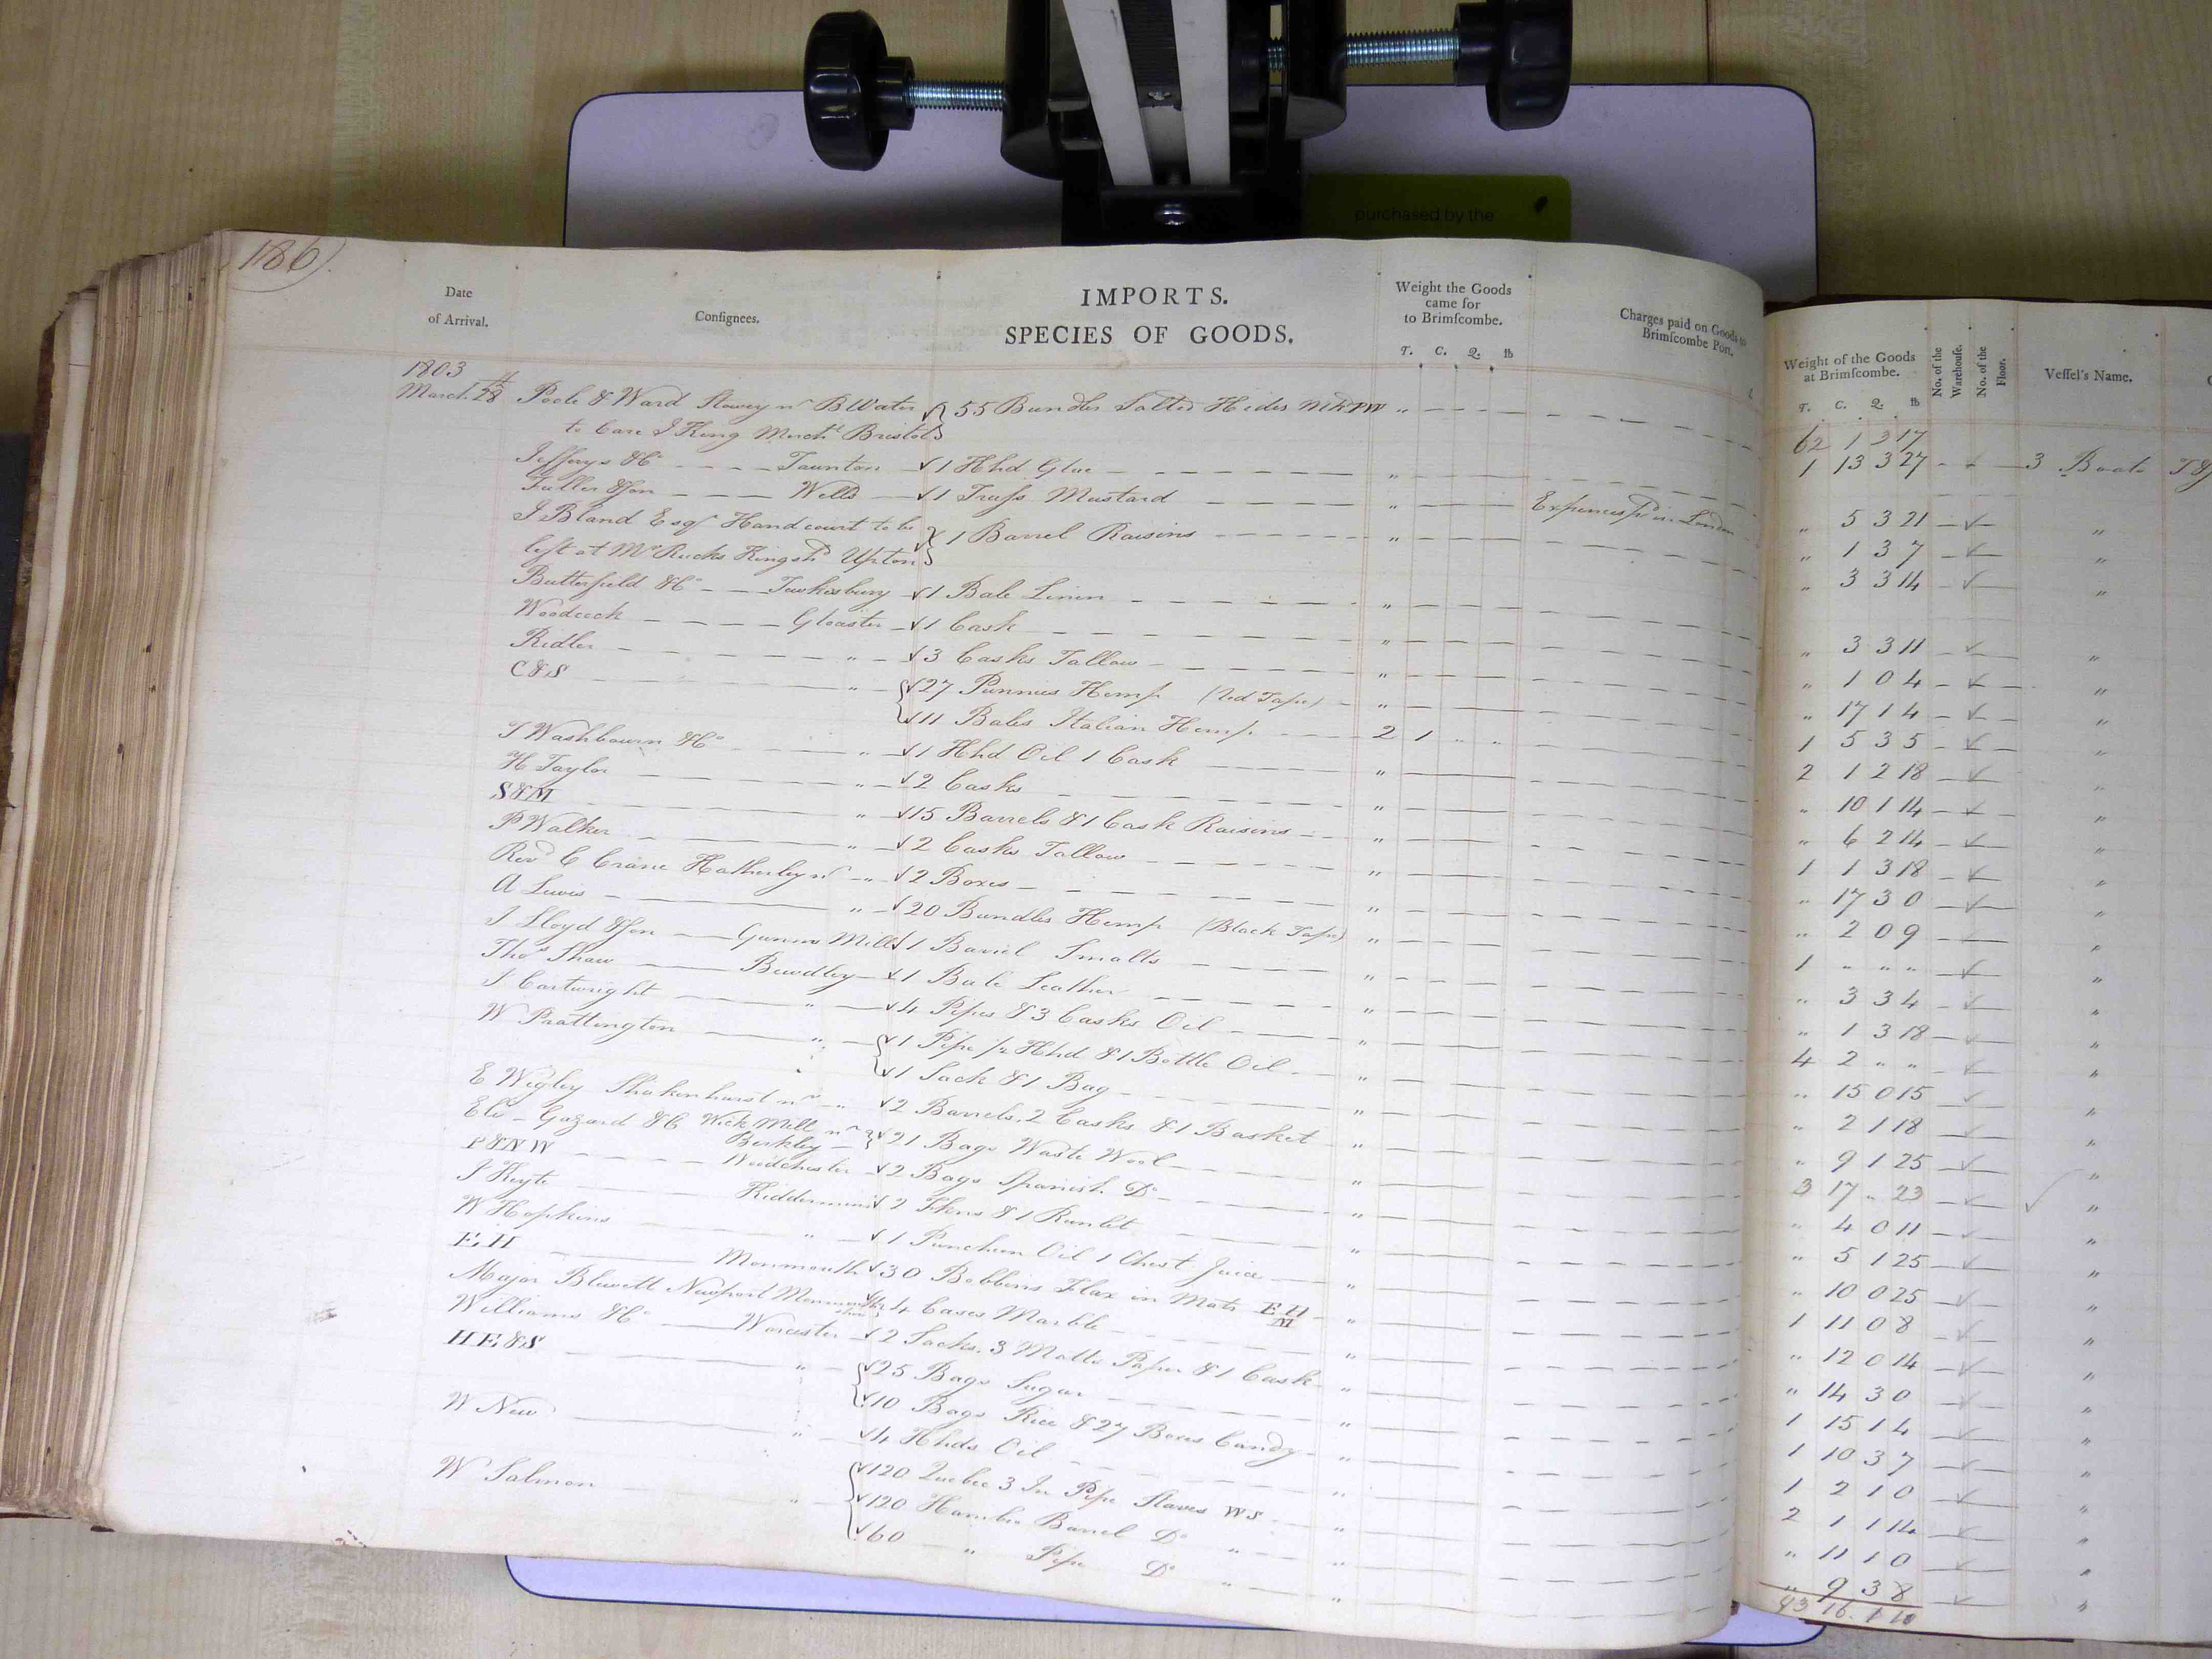 purchased by the
186).
Date
of Arrival.
Consignees.
IMPORTS.
SPECIES OF GOODS.
Weight the Goods
came for
to Brimſcombe.
T. C. Q. ℔
Charges paid on Goods to
Brimſcombe Port.
Weight of the Goods
at Brimſcombe.
T. C. Q. ℔
No. of the
Warehouſe.
No. of the
Floor.
Veſſel's Name.
1803
62 1 2 17
March 28 Poole & Ward Stowey nr BWater 55 Bundles Salted Hides Mk PW " 1 13 3 27 3 Boats
to Care J King Mercht Bristol
Jefferys & Co Taunton 1 Hhd Glue " " 5 3 21 "
Fuller & Son Wells 1 Truſs Mustard " Expences pd in London " 1 3 7 "
J Bland Esqr Handcourt to be 1 Barrel Raisins " " 3 3 14 "
left at Mr Rucks Upton
Butterfield & Co Tewkesbury 1 Bale Linen " " 3 3 11 "
Woodcock Gloaster 1 Cask " " 1 0 4 "
Ridler " 3 Casks Tallow " " 17 1 4 "
C&S " 27 Hemp (Red Tape) " 1 5 3 5 "
11 Bales Italian Hemp 2 1 " " 2 1 2 18 "
T Washbourn & Co " 1 Hhd Oil 1 Cask " " 10 1 14 "
H Taylor " 2 Casks " " 6 2 14 "
S&M " 15 Barrels & 1 Cask Raisins " 1 1 3 18 "
P Walker " 2 Casks Tallow " " 17 3 0 "
Revd C Crane Hatherley nr " 2 Boxes " " 2 0 9 "
A Lewis " 20 Bundles Hemp (Black Tape) " 1 " " " "
J Lloyd & Son Gunns Mills 1 Barrel Smalts " " 3 3 4 "
Thos Shaw Bewdley 1 Bale Leather " " 1 3 18 "
J Cartwright " 4 Pipes & 3 Casks Oil " 4 2 " " "
W Prattington " 1 Pipe 1/2 Hhd & 1 Bottle Oil " " 15 0 15 "
1 Sack & 1 Bag " " 2 1 18 "
E Wigley Shakenhurst nr " 2 Barrels, 2 Casks & 1 Basket " " 9 1 25 "
Eliz Gazard & Co Wick Mill nr 21 Bags Waste Wool " 3 17 " 23 "
Berkley
P&NW Woodchester 2 Bags Spanish Do " " 4 0 11 "
J Keyte Kiddermins 2 Fkns & 1 Runlet " " 5 1 25 "
W Hopkins " 1 Puncheon Oil 1 Chest Juice " " 10 0 25 "
EH Monmouth 30 Bobbins Flax in Mats EH M " 1 11 0 8 "
Major Blewett Newport Monmouth shire 4 Cases Marble " " 12 0 14 "
Williams & Co Worcester 2 Sacks, 3 Matts Paper & 1 Cask " " 14 3 0 "
HE&S " 25 Bags Sugar " 1 15 1 4 "
10 Bags Rice & 27 Boxes Candy " 1 10 3 7 "
W New " 4 Hhds Oil " 1 2 1 0 "
W Salmon " 120 Quebec 3 In Pipe Staves WS " 2 1 1 14 "
120 Hambro Barrel Do " " " 11 1 0 "
60 " Pipe Do " " " 9 3 8 "
93 16 1 10